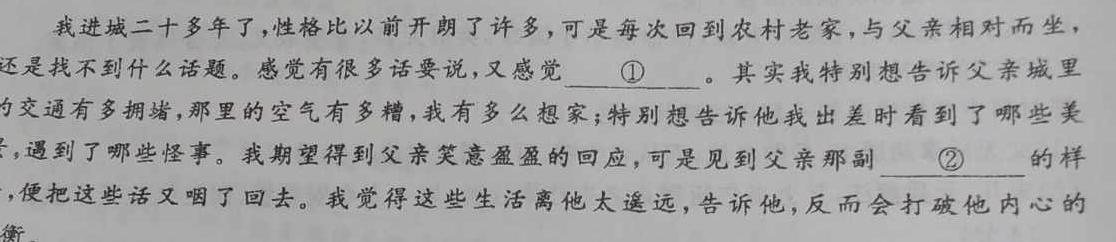 我进城二十多年了,性格比以前开朗了许多,可是每次回到农村老家,与父亲相对而坐,
还是找不到什么话题。感觉有很多话要说,又感觉 ① 。其实我特别想告诉父亲城里
的交通有多拥堵,那里的空气有多糟,我有多么想家;特别想告诉他我出差时看到了哪些美
,遇到了哪些怪事。我期望得到父亲笑意盈盈的回应,可是见到父亲那副 ② 的样
,便把这些话又咽了回去。我觉得这些生活离他太遥远,告诉他,反而会打破他内心的
衡。